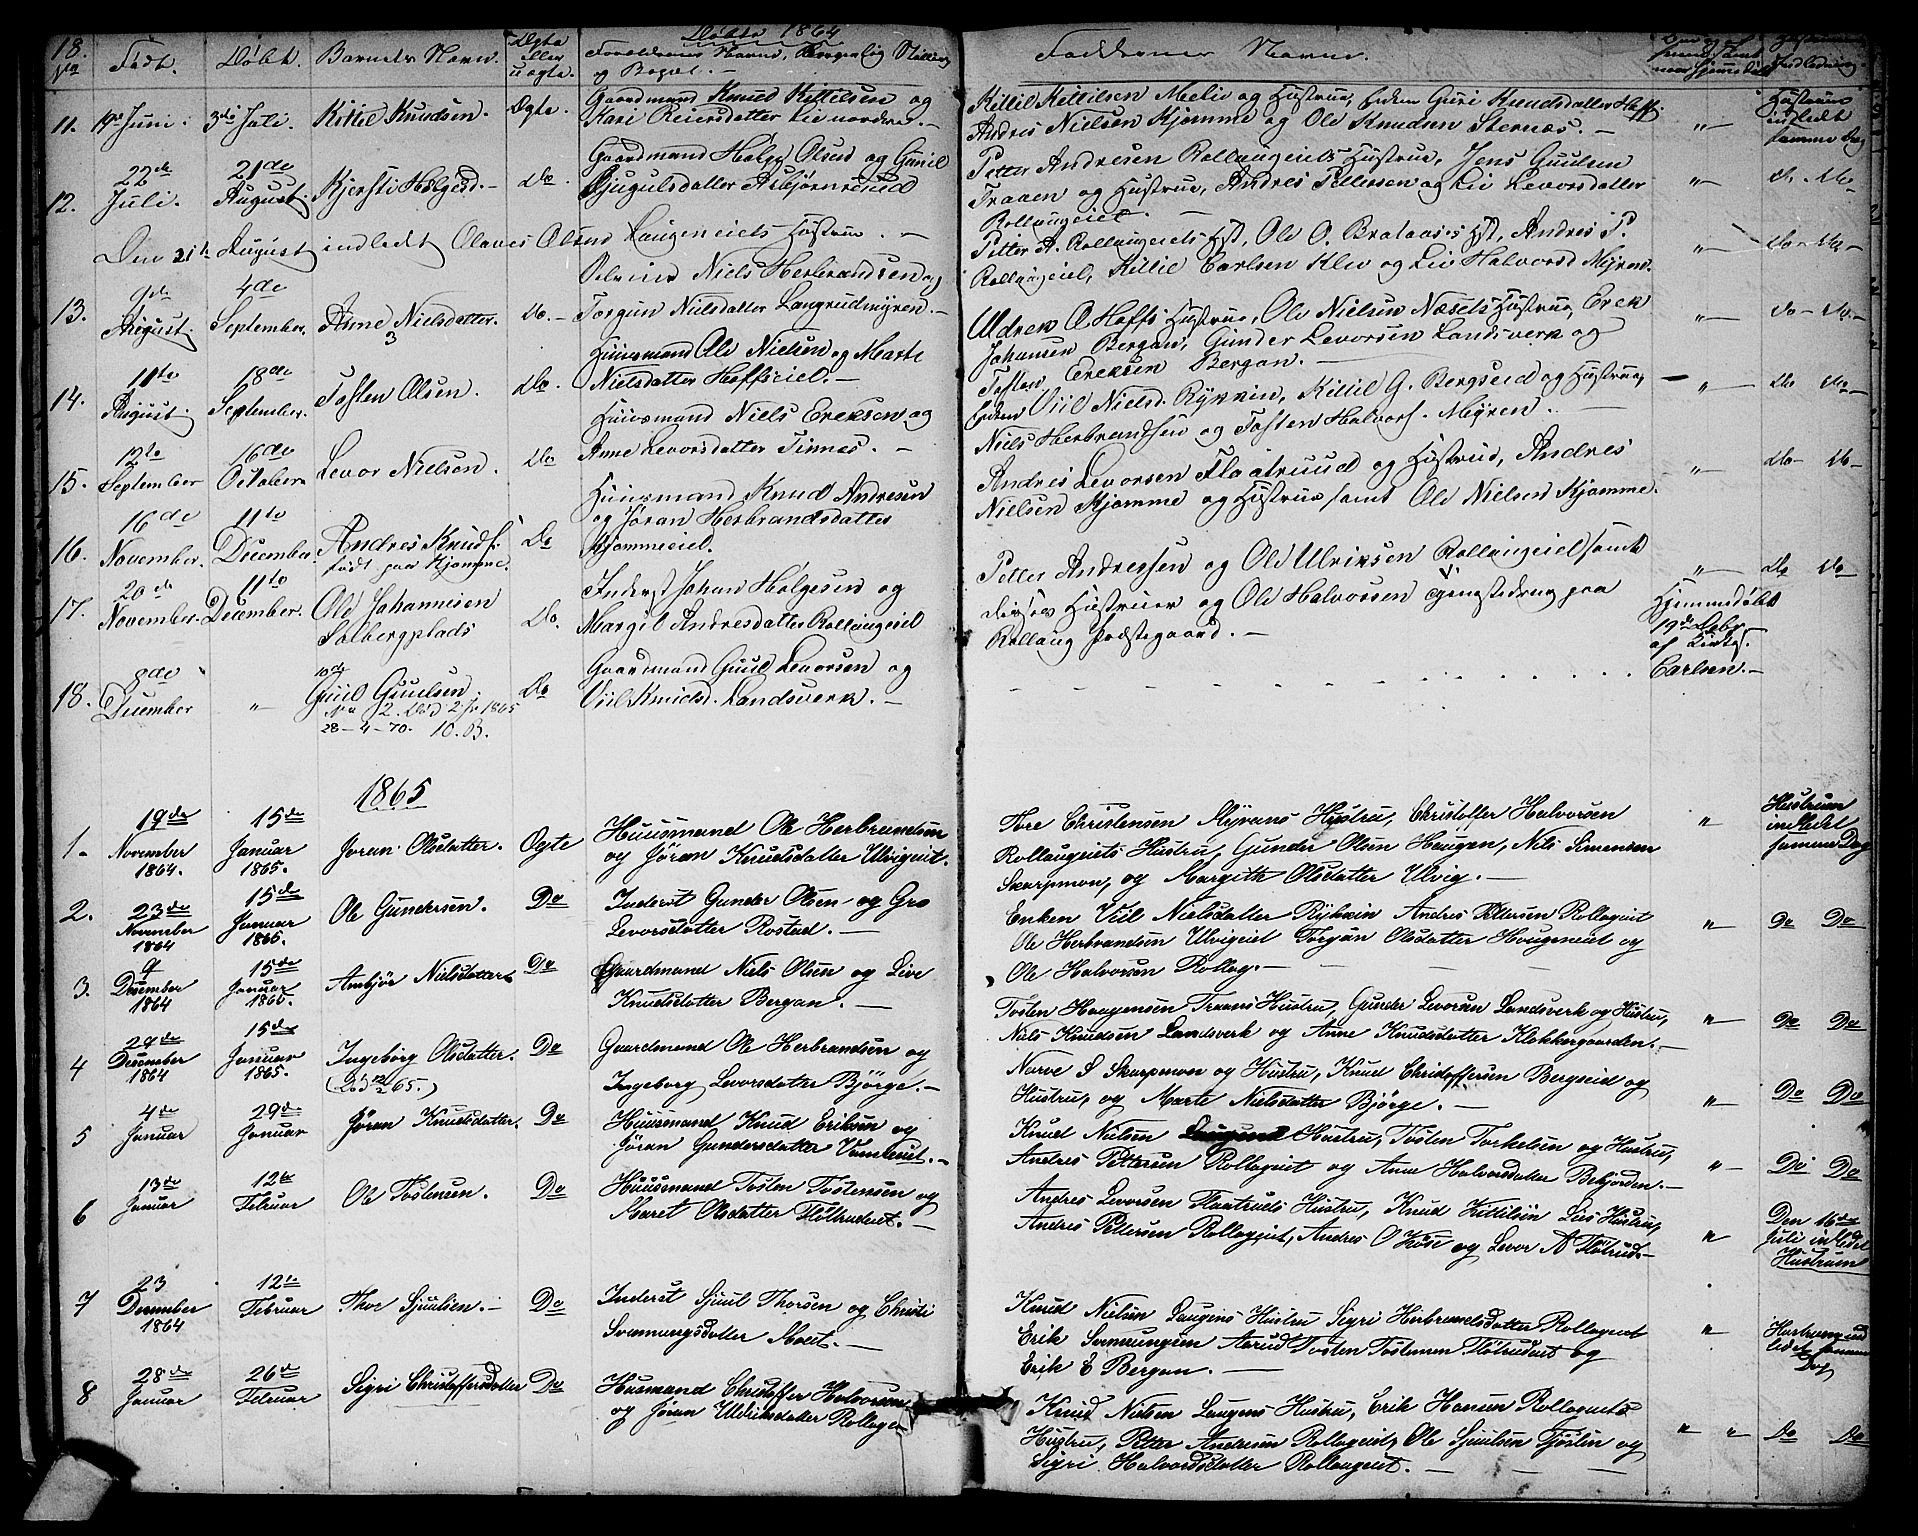 18.
Døbte 1864
No Født. Døbt. Barnets Navn. Ægte eller uægte. Forældrenes Navne, Borgerlig Stilling og Bopæl. Faddernes Navne.
11. Juni. 3de Juli. Kittil Knudsen. Ægte. Gaardmand Knud Kittelsen og
Kari Reiersdatter Lie nordre. —
Kittil Kittilsen Meli og Hustrue, Enken Guri Knudsdatter Hoff,
Andres Nielsen Kjomme og Ole Knudsen Sternæs. —
Hustrue indledt samme Dag
12. 22de Juli. 21de August. Kjersti Helgesd. — Do. Gaardmand Helge Olsen og Gunil
Asbjørnrud
Petter Andresen Rollaugeiets Hustrue, Jens Guulsen
Traaen og Hustrue, Andres Pettersen og Liv Levorsdatter
Rollaugeiet. —
„ — do - do -
Den 21de August indledt Olaves Olsens Haugeneiets Hustrue. —
Petter A. Rollaugeiets Hst, Ole O. Brataases Hst, Andres P.
Rollaugeiet, Kittil Carlsen Klev og Liv Halvorsd Myren.
„ — do - do -
13. August. 4de September. Anne Nielsdatter. Do. — Niels Herbrandsen og
Torgun Nielsdatter Langrudmyren. —
Uldrek O Hoffs Hustrue, Ole Nielsen Næsets Hustrue, Erek
Johansen Bergan, Gunder Levorsen Landsverk og
Tosten Ereksen Bergan. —
„ — do - do. —
14. 11te August. 18de September. Tosten Olsen. Do. Huusmand Ole Nielsen og Marte
Nielsdatter Hoffseiet. —
Enken Viil Nielsd. Rykkin, Kittil G. Bergseid og Hustrue,
Niels Herbrandsen og Tosten Halvors. Myren. —
„ — do do —
15. 12te September 16de October Levor Nielsen. Do Huusmand Niels Ereksen og
Anne Levorsdatter Tinnes. —
Andres Levorsen Flaatruud og Hustrue, Andres
Nielsen Kjomme og Hustrue samt Ole Nielsen Kjomme.
„ — do - do -
16. 16de November. 11te December. Andres Knuds.
født paa Kjomme.
Do Huusmand Knud Andresen
og Jøran Herbrandsdatter
Kjommeeiet.
Petter Andresen og Ole Ulriksen Rollaugeiet samt
Hustruer og Ole Halvorsen tjenestedreng paa
Rollaug Præstegaard. —
„ — do do —
17. 20de November. 11te December. Ole Johannesen
Solbergplads
Do. Inderst Johan Helgesen og
Margit Andresdatter Rollaugeiet
Hjemmedøbt
19de Debr
af Kirkes.
Carlsen. —
18. 8de December „ Guul Guulsen
No 2. Død 2 Ja 1865
28 – 4 – 70. 10. B.
Do Gaardmand Guul Levorsen og
Viil Knudsd. Landsverk. —
1865
1. 19de November 1864. 15de Januar 1865. Joran Olsdatter. Ægte Huusmand Ole Herbrandsen
og Jøran Knudsdatter Ulvigeiet.
Tore Christensen Myrans Hustru, Christoffer Halvorsen
Rollaugeiets Hustru, Gunder Olsen Haugen, Nils Simensen
Skarpmon, og Margith Olsdatter Ulvig. —
„ Hustruen indledet samme Dag
2. 23de November 1864 15de Januar 1865. Ole Gundersen. Do Inderst Gunder Olsen og Gro
Levorsdatter Rostad. —
Enken Viil Nielsdatter Rykkin Andres Pettersen Rollageiet
Ole Herbrandsen Ulvigeiet Torgun Olsdatter Haugeneiet og
Ole Halvorsen Rollag. —
„ Do Do
3. 9 December 1864 15de Januar 1865. Ambjør Nielsdatter Do Gaardmand Niels Olsen og Live
Knudsdatter Bergan. —
Tosten Haagensen Traaens Hustru, Gunder Levorsen Landsverk og Hustru,
Niels Knudsen Landsverk og Anne Knudsdatter Klokkergaarden. —
„ — Do Do
4 29de December 1864 15de Januar 1865. Ingeborg Olsdatter.
Do Gaardmand Ole Herbrandsen og
Ingeborg Levorsdatter Bjørge. —
Norve S Skarpmon og Hustru, Knud Christoffersen Bergseid og
Hustru, og Marte Nielsdatter Bjørge. —
„ — Do Do
5 4de Januar 29de Januar Jøran Knudsdatter. Do Huusmand Knud Eriksen og
Jøran Gundersdatter —
Knud Nielsen Haugens Hustru, Tosten Torkelsen og Hustru,
Andres Pettersen Rollageiet og Anne Halvorsdatter Bekjorden. —
„ — Do Do
6 13de Januar 12te Februar Ole Tostensen. Do Huusmand Tosten Tostensen og
Maret Olsdatter Fløtrudeiet. —
Andres Levorsen Flaatruds Hustru, Knud Kittilsen Lies Hustru,
Andres Pettersen Rollageiet, Andres O Kose og Levor A Fløtrud. —
„ Den 16de
Juli indledet
Hustruen
7 23 December 1864 12te Februar Thor Sjuulsen. — Do Inderst Sjuul Thorsen og Christi
Svennungsdatter Moeit. —
Knud Nielsen Haugens Hustru Sigri Herbrandsdatter Rollageiet
Erik Svennungsen Aasrud Tosten Tostensen Fløtrudeiet og
Erik E Bergan. —
„ Hustruen ind
ledet samme
Dag
8 28de Januar 26de Februar Sigri Christoffersdatter Do Husmand Christoffer Halvorsen
og Jøran Uldriksdatter Rollage
Knud Nielsen Haugens Hustru, Erik Hansen Rollageiets
Hustru, Petter Andresen Rollageiet, Ole Sjuulsen Fjøslin og
Sigri Halvordsdatter Rollageiet. —
„ „ Do Do